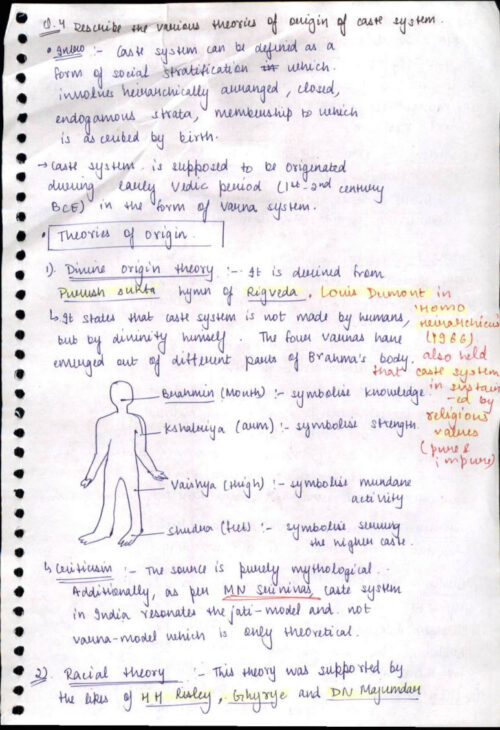 Q.4 Describe the various theories of origin of caste system.
• Intro :- Caste system can be defined as a
form of social stratification which
involves heirarchically arranged, closed,
endogamous strata, membership to which
is ascribed by birth.
→ Caste system is supposed to be originated
during early Vedic period (1st-2nd century
BCE) in the form of varna system.
• Theories of origin.
1). Divine origin theory :- It is derived from
Purush sukta hymn of Rigveda. Louis Dumont in
↳ It states that caste system is not made by humans, 'Homo
but by divinity himself. The four varnas have heirarchicus
emerged out of different parts of Brahma's body. (1966)
also held
that caste system
Brahmin (Mouth) :- symbolise knowledge in sustain
-ed by
Kshatriya (arm) :- symbolise strength. religious
values
(pure &
impure)
Vaishya (thigh) :- symbolise mundane
activity
Shudra (feet) :- symbolise serving
the higher caste.
↳ Criticism :- The source is purely mythological.
Additionally, as per MN Srinivas, caste system
in India resonates the jati-model and not
varna-model which is only theoretical.
2). Racial theory :- This theory was supported by
the likes of HH Risley, Ghyrye and DN Majumdar